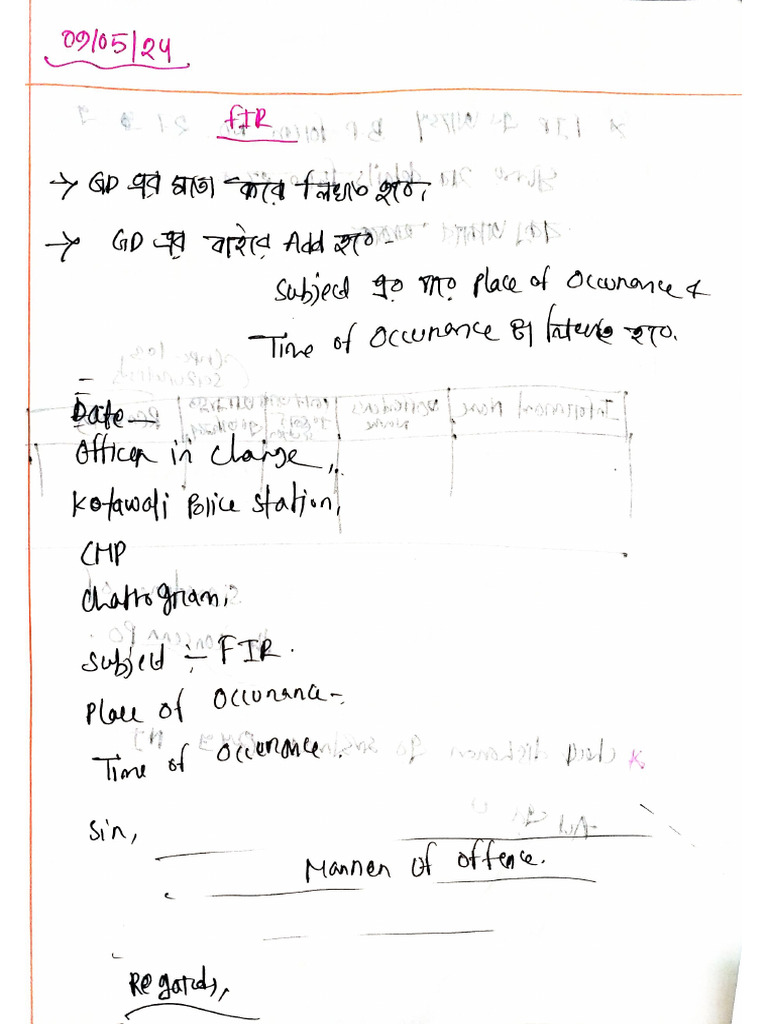 09/05/24
FIR
→ GD এর মতো করে লিখতে হবে।
→ GD এর বাইরে Add হবে -
Subject এর পরে Place of Occurance &
Time of Occurance হবে.
Date -
Officer in charge,
Kotawali Police Station,
CMP
Chattogram,
Subject :- FIR.
Place of Occurance -
Time of Occurance
Sir,
Manner of offence.
Regards,